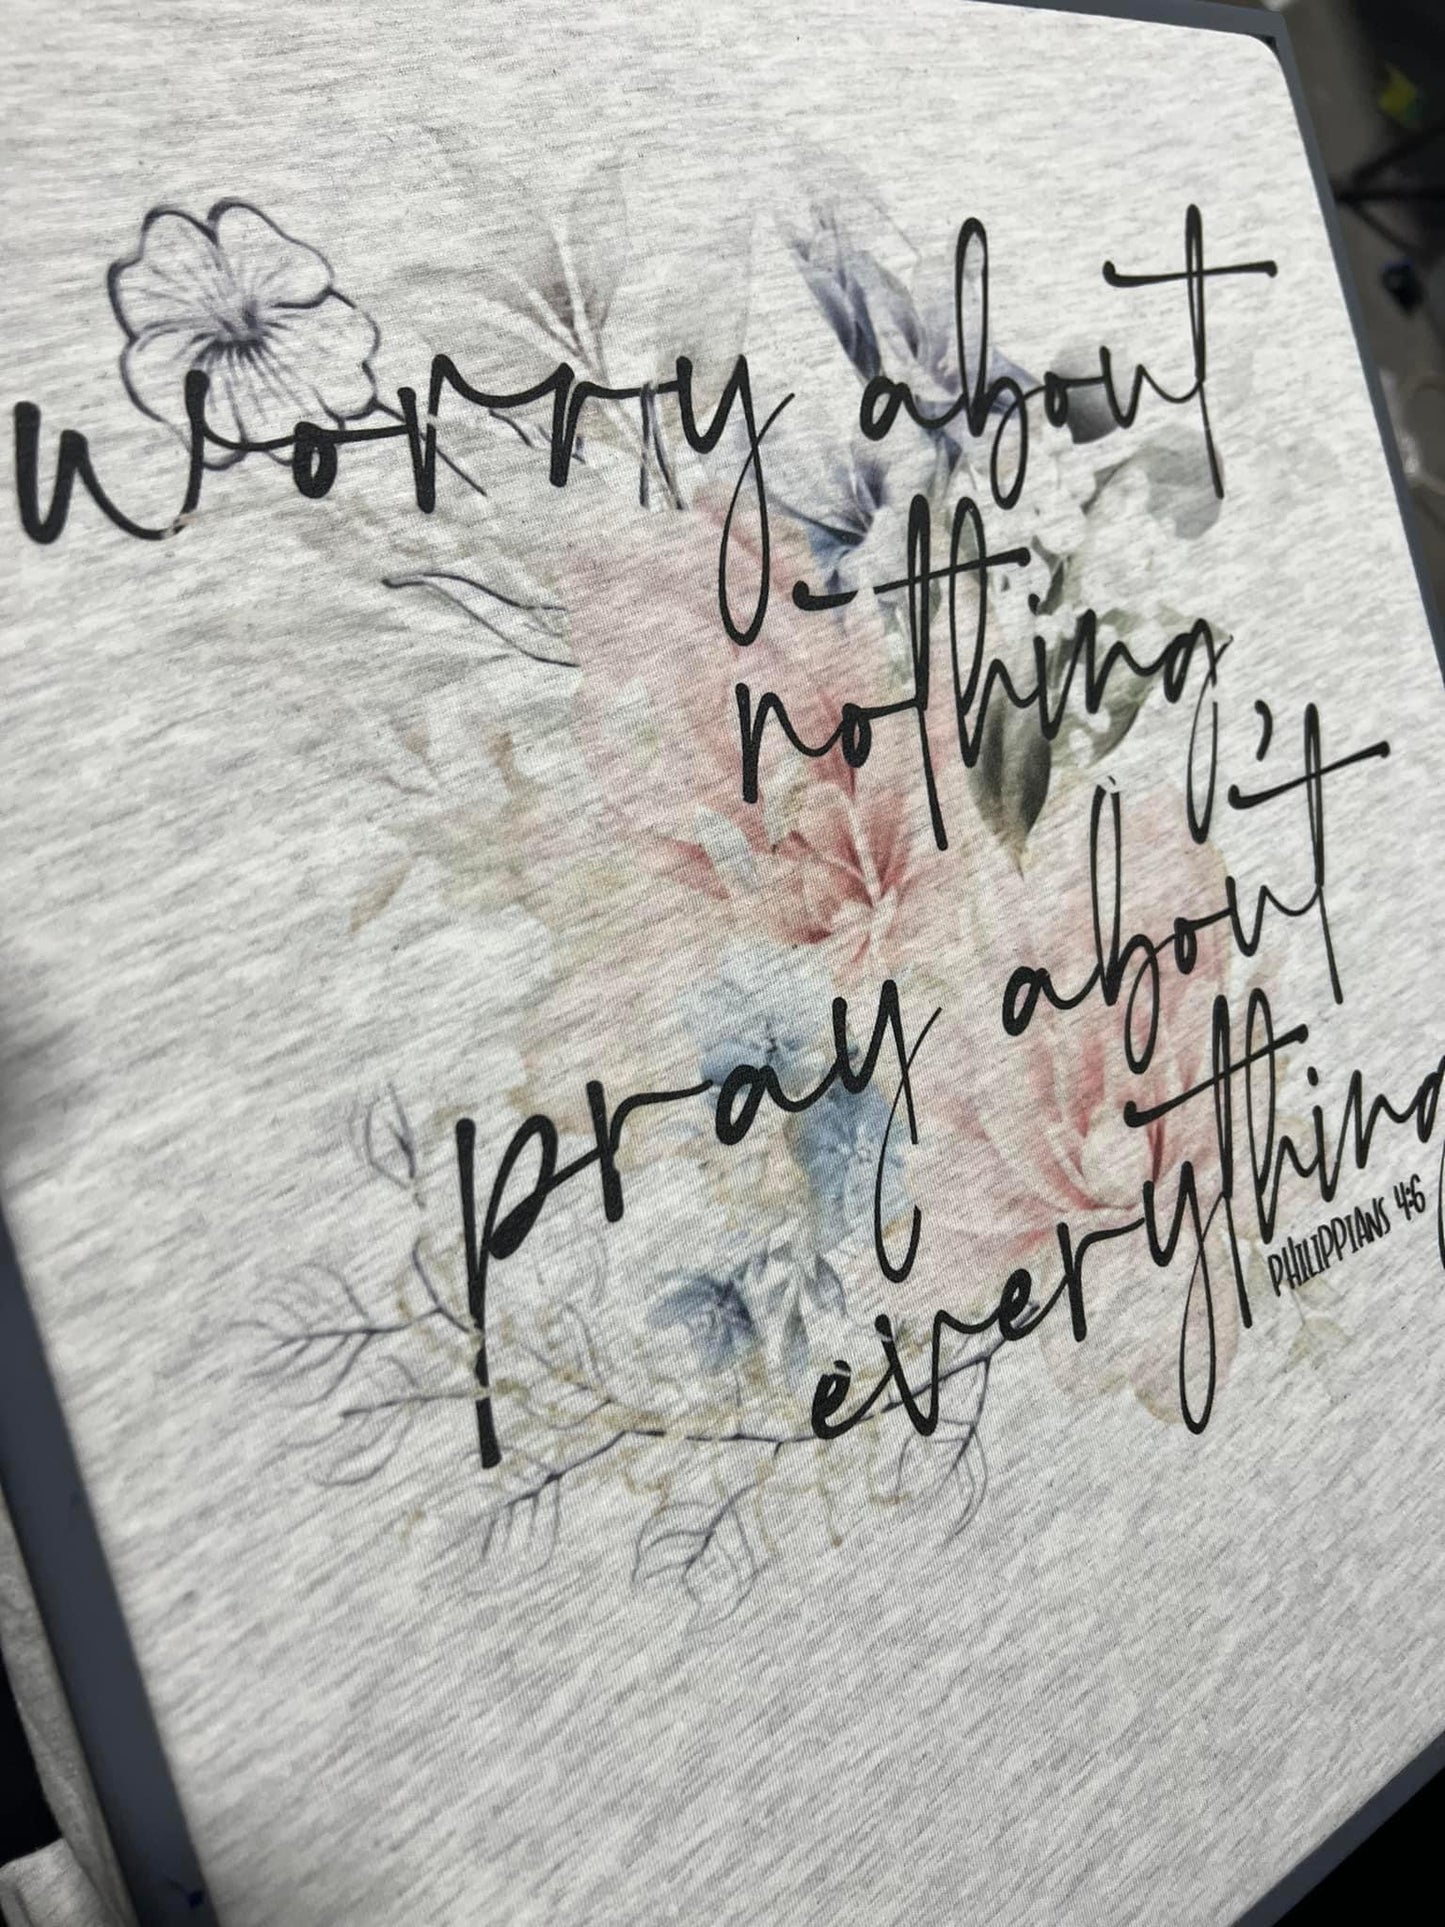 worry about
nothing,
pray about
everything
PHILIPPIANS 4:6